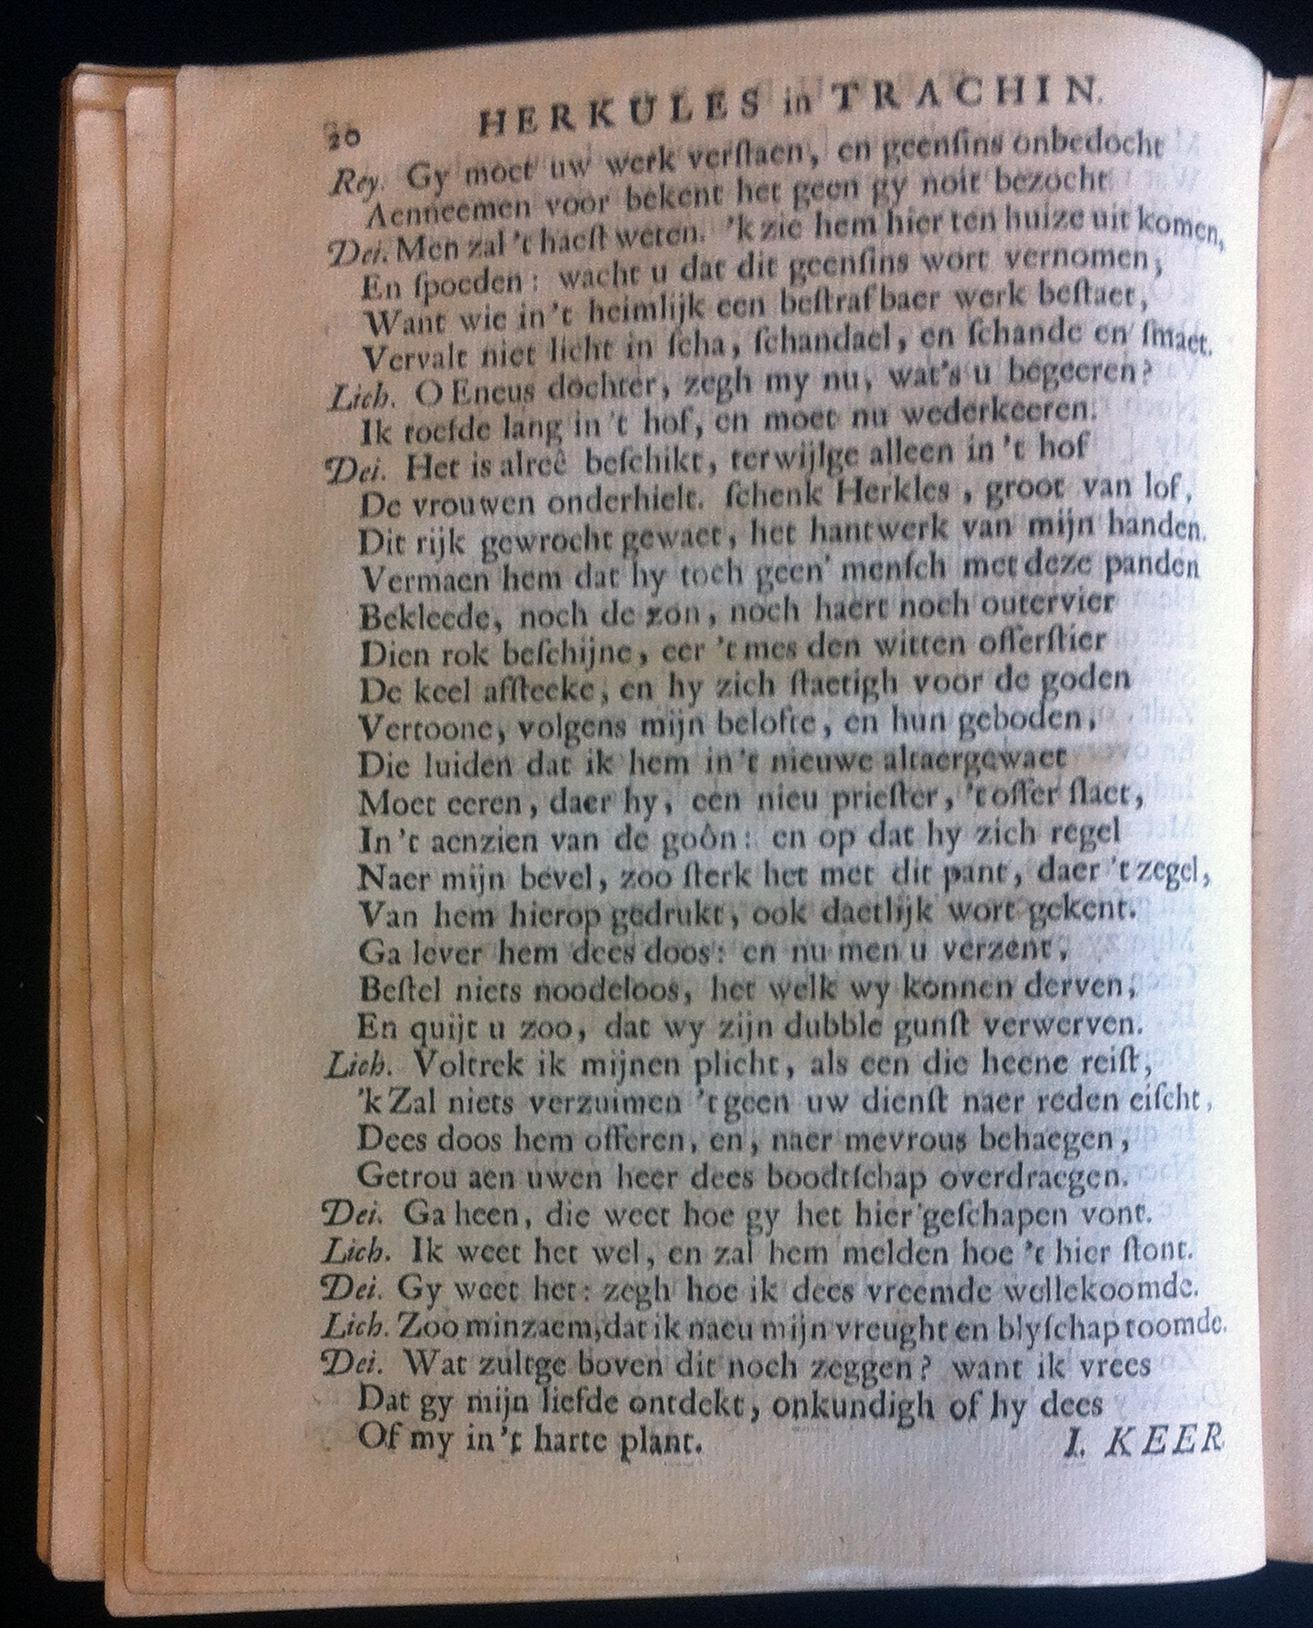 20 HERKULES in TRACHIN.
Rey. Gy moet uw werk verſtaen, en geenſins onbedocht
Aenneemen voor bekent het geen gy noit bezocht
Dei. Men zal 't haeſt weten. 'k zie hem hier ten huize uit komen,
En ſpoeden: wacht u dat dit geenſins wort vernomen,
Want wie in 't heimlijk een beſtrafbaer werk beſtaet,
Vervalt niet licht in ſcha, ſchandael, en ſchande en ſmaet.
Lich. O Eneus dochter, zegh my nu, wat's u begeeren?
Ik toefde lang in 't hof, en moet nu wederkeeren.
Dei. Het is alreê beſchikt, terwijlge alleen in 't hof
De vrouwen onderhielt. ſchenk Herkles, groot van lof,
Dit rijk gewrocht gewaet, het hantwerk van mijn handen.
Vermaen hem dat hy toch geen' menſch met deze panden
Bekleede, noch de zon, noch haert noch outervier
Dien rok beſchijne, eer 't mes den witten offerſtier
De keel afſteeke, en hy zich ſtaetigh voor de goden
Vertoone, volgens mijn belofte, en hun geboden,
Die luiden dat ik hem in 't nieuwe altaergewaet
Moet eeren, daer hy, een nieu prieſter, 't offer ſlaet,
In 't aenzien van de goôn: en op dat hy zich regel
Naer mijn bevel, zoo ſterk het met dit pant, daer 't zegel,
Van hem hierop gedrukt, ook daetlijk wort gekent.
Ga lever hem dees doos: en nu men u verzent,
Beſtel niets noodeloos, het welk wy konnen derven,
En quijt u zoo, dat wy zijn dubble gunſt verwerven.
Lich. Voltrek ik mijnen plicht, als een die heene reiſt,
'k Zal niets verzuimen 't geen uw dienſt naer reden eiſcht,
Dees doos hem offeren, en, naer mevrous behaegen,
Getrou aen uwen heer dees boodtſchap overdraegen.
Dei. Ga heen, die weet hoe gy het hier geſchapen vont.
Lich. Ik weet het wel, en zal hem melden hoe 't hier ſtont.
Dei. Gy weet het: zegh hoe ik dees vreemde wellekoomde.
Lich. Zoo minzaem, dat ik naeu mijn vreught en blyſchap toomde.
Dei. Wat zultge boven dit noch zeggen? want ik vrees
Dat gy mijn liefde ontdekt, onkundigh of hy dees
Of my in 't harte plant.
I. KEER